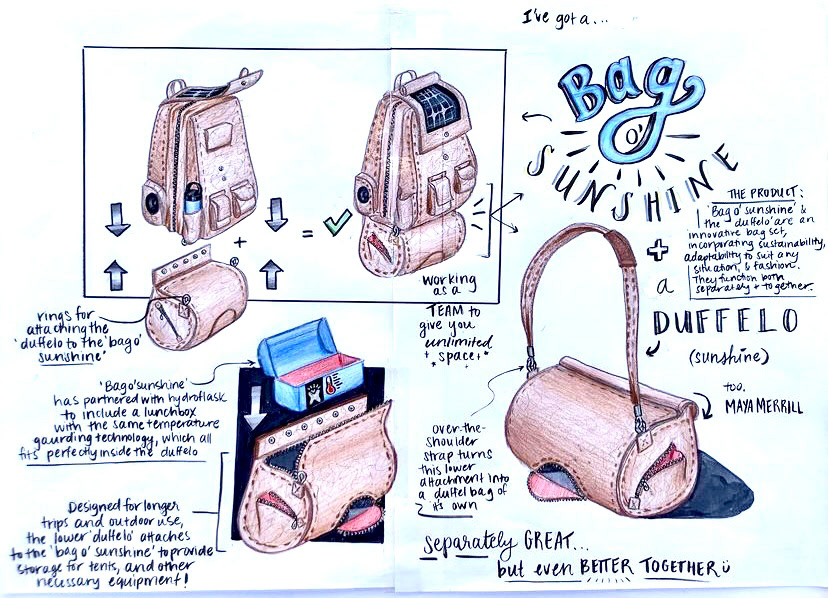 I've got a...
Bag
O'
SUNSHINE
THE PRODUCT:
'Bag o' sunshine' &
the 'duffelo' are an
innovative bag set,
incorporating sustainability,
adaptability to suit any
situation, & fashion.
They function both
separately + together.
+
a
DUFFELO
(sunshine)
too.
MAYA MERRILL
+
=
working
as a
TEAM to
give you
unlimited
space
rings for
attaching the
'duffelo to the 'bag o'
sunshine'
'Bag o' sunshine'
has partnered with hydroflask
to include a lunchbox
with the same temperature
gaurding technology, which all
fits perfectly inside the duffelo
Designed for longer
trips and outdoor use,
the lower 'duffelo' attaches
to the 'bag o' sunshine' to provide
storage for tents, and other
necessary equipment!
over-the-
shoulder
strap turns
this lower
attachment into
a duffel bag of
it's own
separately GREAT...
but even BETTER TOGETHER